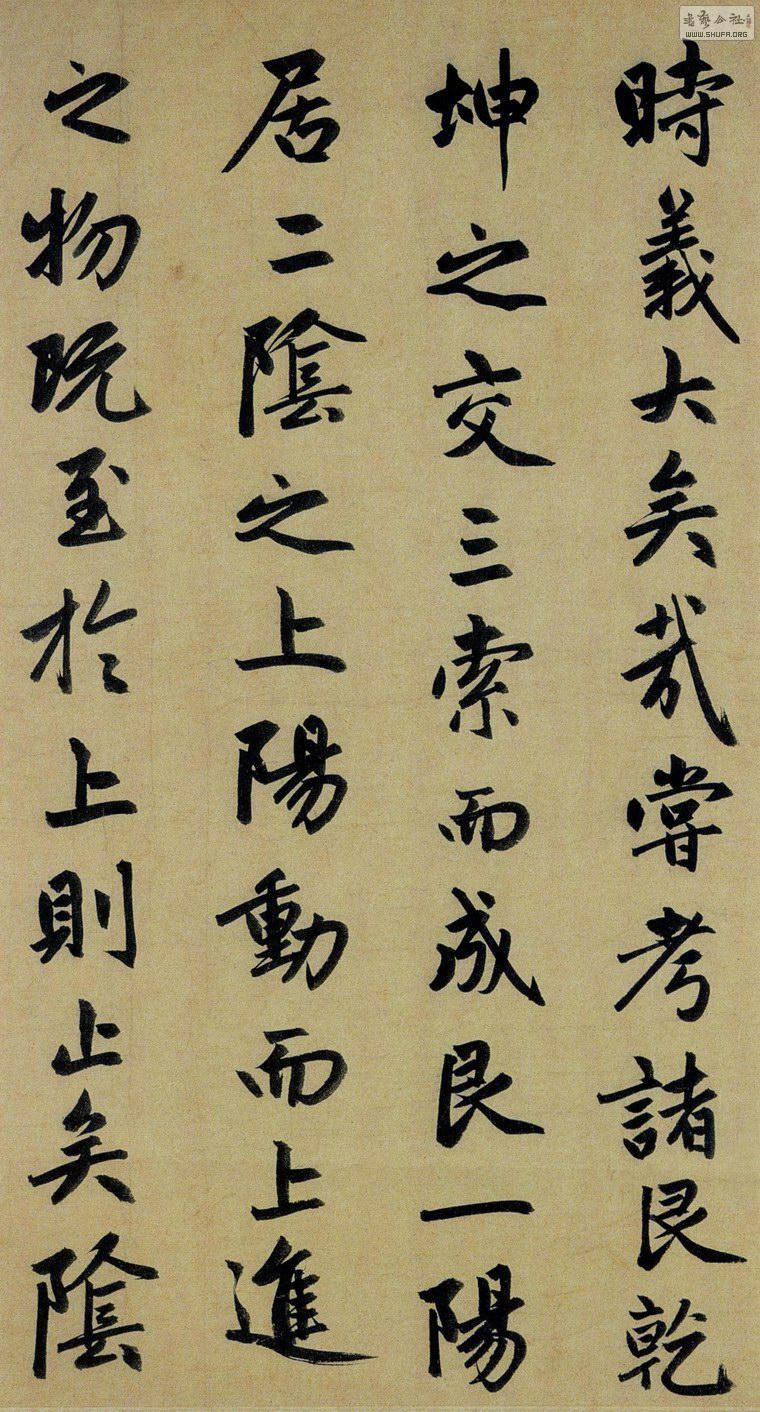 時義大矣哉嘗考諸艮乾
坤之交三索而成艮一陽
居二隂之上陽動而上進
之物既至於上則止矣隂
WWW.SHUFA.ORG